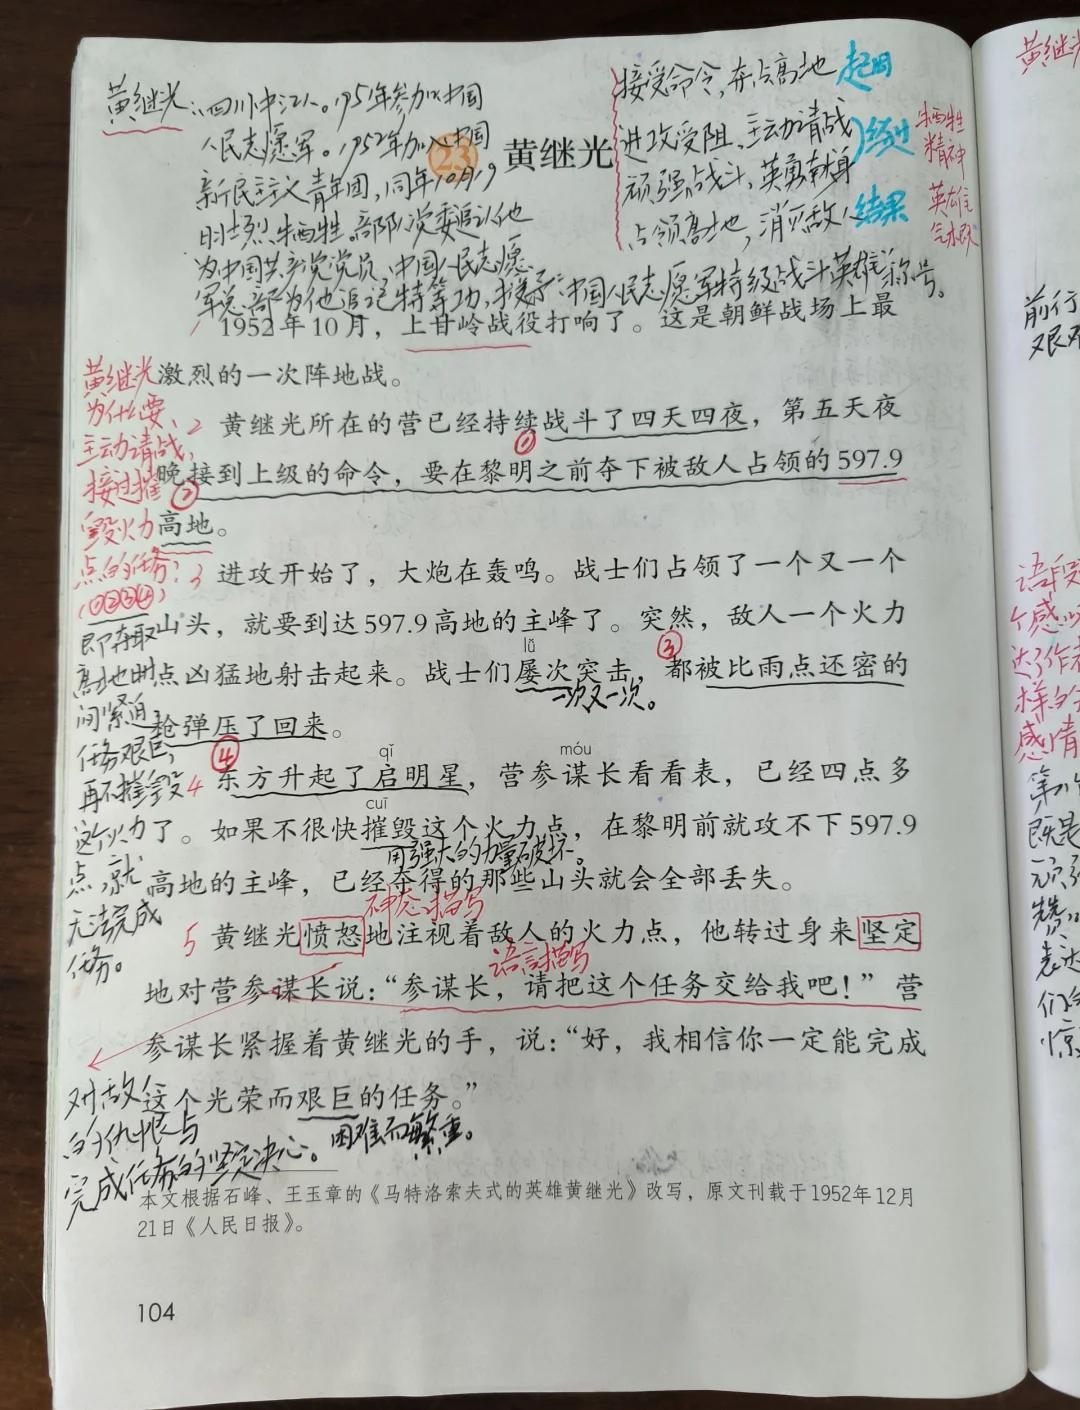 黄继光：四川中江人。1951年参加中国
人民志愿军。1952年加入中国
新民主主义青年团,同年10月19
日壮烈牺牲。部队党委追认他
为中国共产党党员,中国人民志愿
军总部为他追记特等功,授予“中国人民志愿军特级战斗英雄”称号。
接受命令,夺占高地 起因
进攻受阻、主动请战
顽强战斗,英勇献身
经过
占领高地,消灭敌人 结果
牺牲
精神
英雄主
气概
23 黄继光
1 1952年10月，上甘岭战役打响了。这是朝鲜战场上最
激烈的一次阵地战。
2 黄继光所在的营已经持续战斗了四天四夜，第五天夜
①
晚接到上级的命令，要在黎明之前夺下被敌人占领的597.9
②
高地。
3 进攻开始了，大炮在轰鸣。战士们占领了一个又一个
山头，就要到达597.9高地的主峰了。突然，敌人一个火力
lǚ
③
点凶猛地射击起来。战士们屡次突击，都被比雨点还密的
一次又一次。
枪弹压了回来。
④
qǐ móu
4 东方升起了启明星，营参谋长看看表，已经四点多
cuī
了。如果不很快摧毁这个火力点，在黎明前就攻不下597.9
用强大的力量破坏。
高地的主峰，已经夺得的那些山头就会全部丢失。
神态描写
5 黄继光愤怒地注视着敌人的火力点，他转过身来坚定
语言描写
地对营参谋长说：“参谋长，请把这个任务交给我吧！”营
参谋长紧握着黄继光的手，说：“好，我相信你一定能完成
这个光荣而艰巨的任务。”
困难而繁重。
黄继光
为什么要
主动请战,
接过摧
毁火力
点的任务?
(①②③④)
即夺取
高地时
间紧迫,
任务艰巨,
再不摧毁
这个火力
点,就
无法完成
任务。
对敌人
的仇恨与
完成任务的坚定决心。
本文根据石峰、王玉章的《马特洛索夫式的英雄黄继光》改写，原文刊载于1952年12月
21日《人民日报》。
104
黄继光
前行
艰难
语段
达了作者
样的
感情
第八
既是
顽强
赞
表达
们
惊